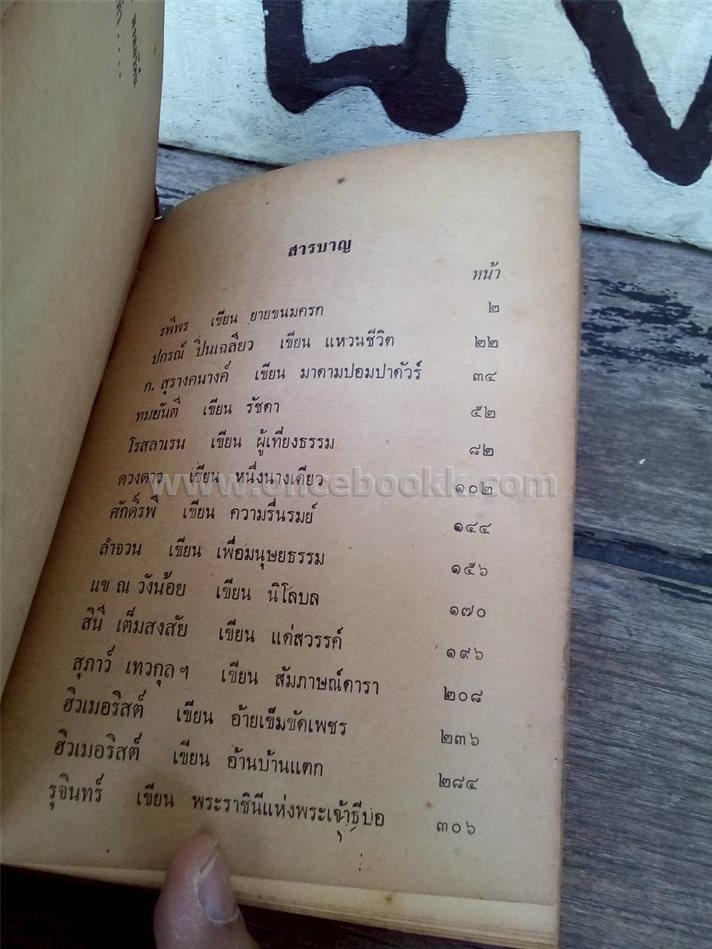 สารบาญ
หน้า
รพีพร เขียน ยายขนมครก ๒
ปกรณ์ ปิ่นเฉลียว เขียน แหวนชีวิต ๒๒
ก. สุรางคนางค์ เขียน มาดามปอมปาดัวร์ ๓๔
ทมยันตี เขียน รัชดา ๕๒
โรสลาเรน เขียน ผู้เที่ยงธรรม ๘๒
ดวงดาว เขียน หนึ่งนางเดียว ๑๐๒
www.oncebookk.com
ศักดิ์รพี เขียน ความรื่นรมย์ ๑๔๔
ลำจวน เขียน เพื่อมนุษยธรรม ๑๕๖
แข ณ วังน้อย เขียน นิโลบล ๑๗๐
สินี เต็มสงสัย เขียน แด่สวรรค์ ๑๙๖
สุภาว์ เทวกุลฯ เขียน สัมภาษณ์ดารา ๒๐๘
ฮิวเมอริสต์ เขียน อ้ายเข็มขัดเพชร ๒๓๖
ฮิวเมอริสต์ เขียน อ้านบ้านแตก ๒๘๔
รุจินทร์ เขียน พระราชินีแห่งพระเจ้าธีบอ ๓๐๖